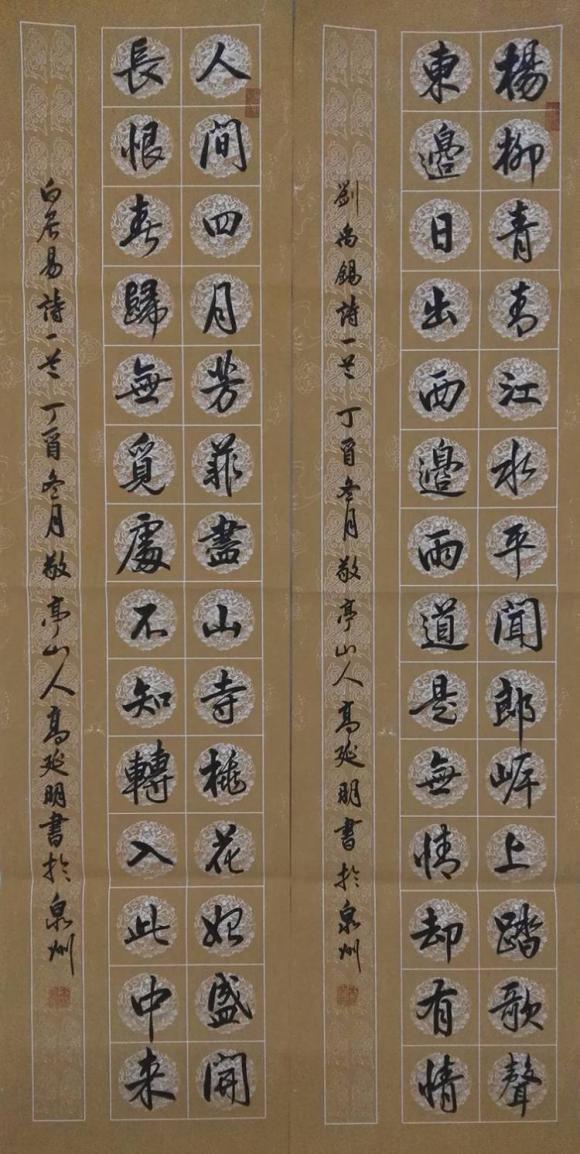 楊柳青青江水平聞郎岸上踏歌聲
東邊日出西邊雨道是無情却有情
劉禹錫詩一首 丁酉冬月敬亭山人高延明書於泉州
人間四月芳菲盡山寺桃花始盛開
長恨春歸無覓處不知轉入此中来
白居易詩一首 丁酉冬月敬亭山人高延明書於泉州